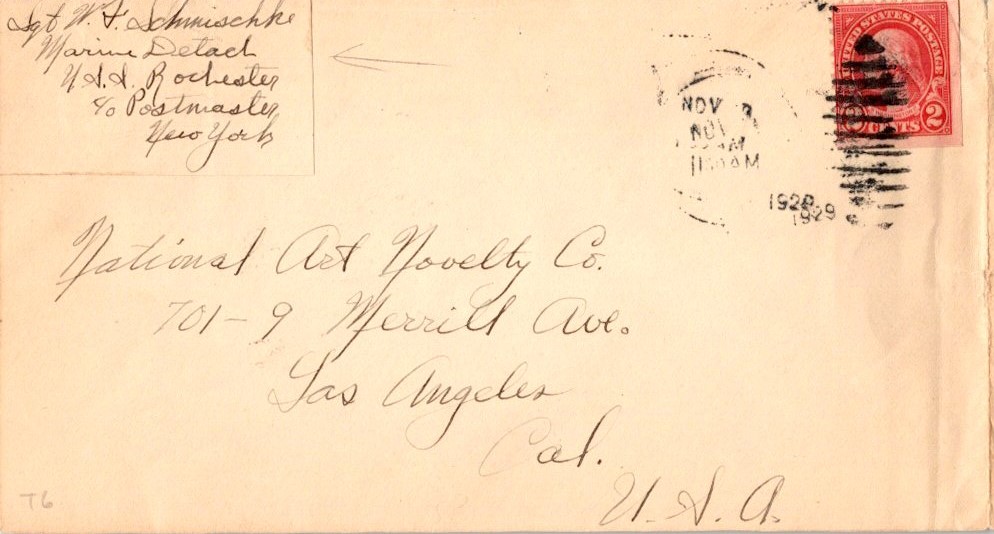 Sgt W. F. Schmischke
Marine Detach
U.S.S. Rochester
c/o Postmaster
New York
UNITED STATES POSTAGE
2 CENTS 2
NOV 3
NOV
AM
1130 AM
1929
1929
National Art Novelty Co.
701-9 Merrill Ave.
Los Angeles
Cal.
U.S.A.
T6